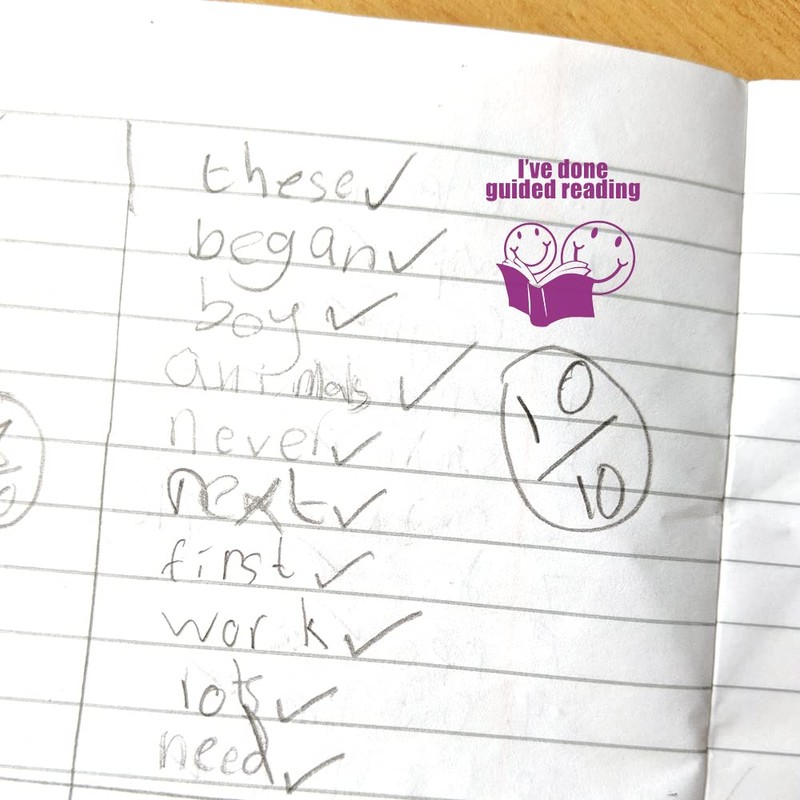 these
began
boy
animals
never
next
first
work
lots
need
I've done
guided reading
10/10